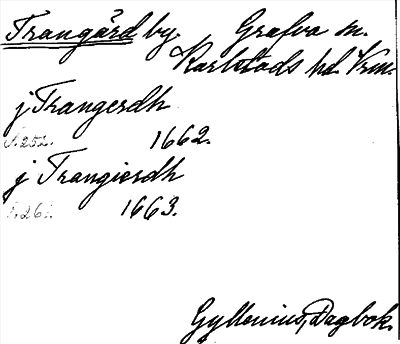 Trangård by. Grafva sn.
Karlstads hd. Vrm.
j Trangerdh
s. 252. 1662.
j Trangierdh
1663.
Gyllenius, Dagbok.